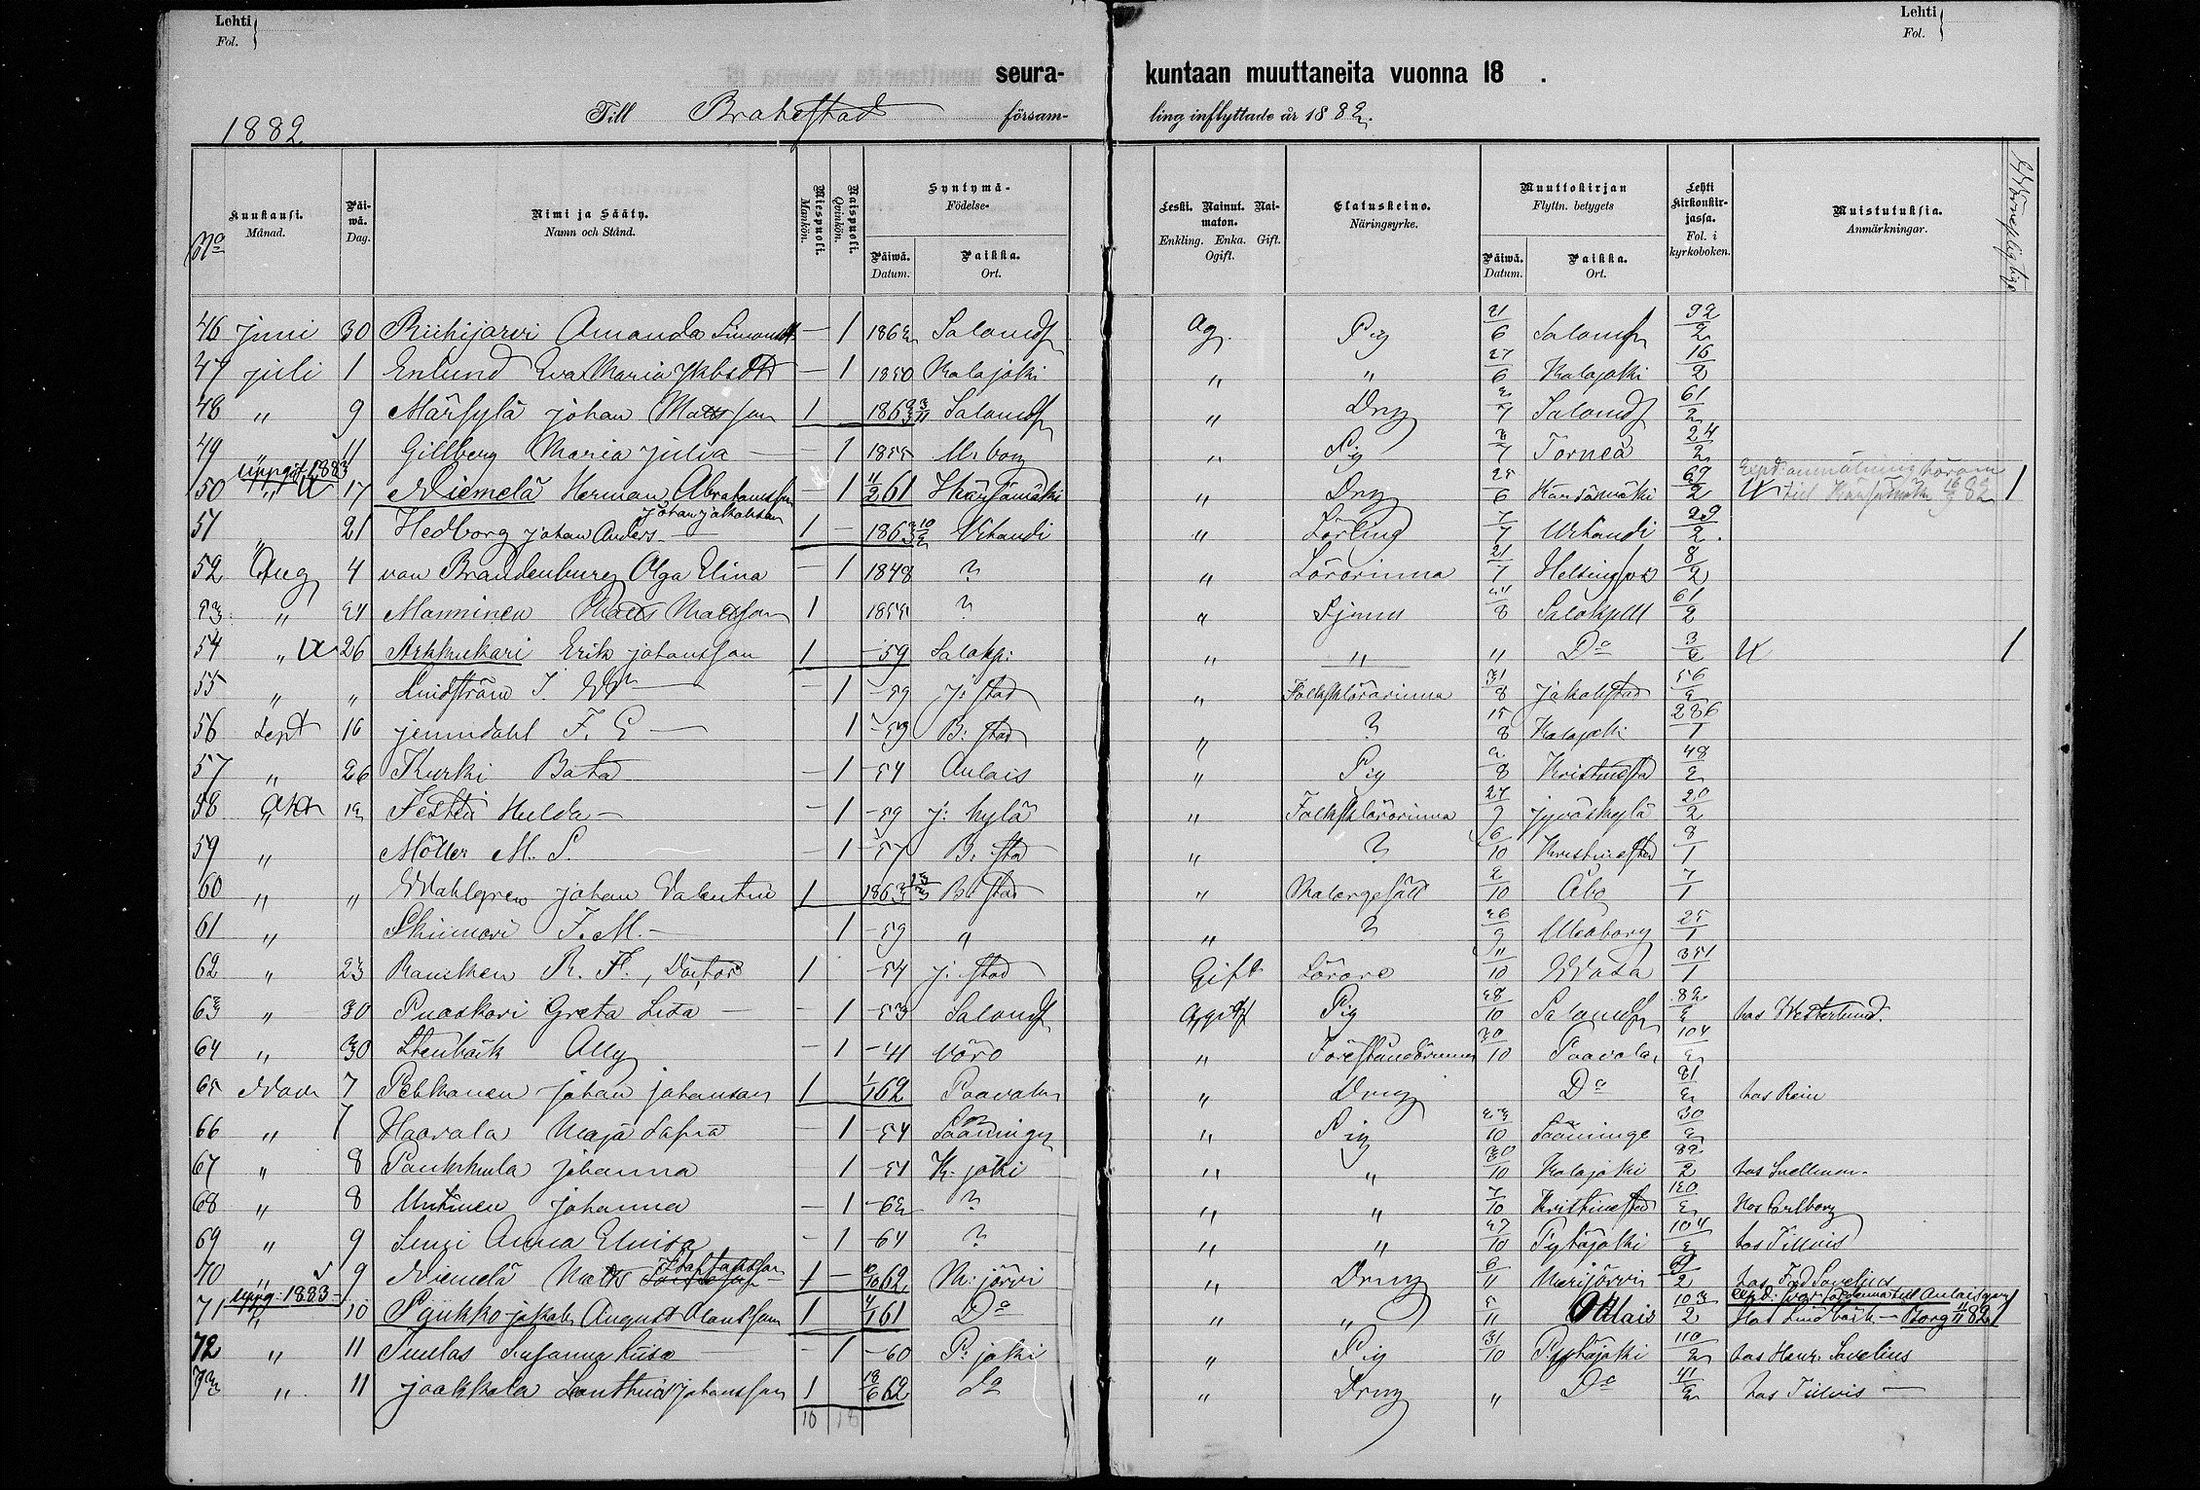 Lehti Fol.
Lehti Fol.
seura- kuntaan muuttaneita vuonna 18 .
1882. Till Brahestad försam- ling inflyttade år 1882.
No Kuukausi. Månad. Päiwä. Dag. Nimi ja Sääty. Namn och Stånd. Miespuoli. Mankön. Naispuoli. Qvinkön. Syntymä- Födelse- Päiwä. Datum. Paikka. Ort. Leski. Nainut. Naimaton. Enkling. Enka. Gift. Ogift. Elatuskeino. Näringsyrke. Muuttokirjan Flyttn. betygets Päiwä. Datum. Paikka. Ort. Lehti Kirkonkirjassa. Fol. i kyrkoboken. Muistutuksia. Anmärkningar.
46 juni 30 Riihijärvi Amanda Simonsdt - 1 1862 Salandf Og. Pig 21/6 Salandf 92/2
47 juli 1 Enlund Eva Maria - 1 1850 Kalajoki " " 27/6 Kalajoki 16/2
48 " 9 Märsylä Johan Mattsson 1 1862 Salandf " Dreng 2/7 Salandf 61/2
49 11 Gillberg Maria Julia - 1 1855 U:borg " Pig 3/7 Torneå 24/2
uppgöt 1883
50 " U 17 Niemelä Herman Abrahamsson - 1 61 Kärsämäki " Dreng 25/6 Kärsämäki 67/2 U till Kärsämäki 82 1
51 " 21 Hedborg Johan Anders Johan Jakobsson 1 - 1863 Uhtandi " Lärling 7/7 29/2
52 Aug 4 von Brandenburg Olga Elina - 1 1848 ? " Lärarinna 21/7 Helsingfors 8/2
53 " 24 Manninen Matts Mattsson 1 1855 ? " 8 61/2
54 " U 26 Arkkukari Erik Johansson 1 -59 Salokp: " " " Do 3/2 U 1
55 " " Lindström J. W. - 1 -59 J:stad " Folkskolärarinna 31/8 Jakobstad 56/2
56 Sept 16 F. E - 1 -59 B:stad " ? 15/8 Kalajoki 286/1
57 " 26 Kurki Bata - 1 -54 Aulais " Pig 2/8 Kristinestad 48/2
58 Okt 12 Festin Hulda - 1 -59 J:kylä " Folkskolärarinna 27/9 Jyväskylä 20/2
59 " Möller M. S. - 1 -57 B:stad " ? 6/10 Kristinestad 8/1
60 " " Wahlgren Johan Valentin 1 1863 B:stad " Målaregesäll 2/10 Åbo 7/1
61 " F. M. - 1 -59 " " ? 26/9 Uleåborg 25/1
62 " 23 Rancken R. F., Doctor 1 -54 J:stad Gift Lärare 10 Wasa 351/1
63 " 30 Puaskari Greta Lisa - 1 -53 Salandf Ogift Pig 28/10 Salandf 82/2 hos Westerlund.
64 " 30 Stenbäck Ally - 1 -41 Vörå " Föreståndarinna 30/10 Paavola 104/2
65 Nov 7 Pelkonen Johan Johansson 1 62 Paavola " Dreng Do 81/2 hos Rein
66 " 7 Haavala Maja Sofia - 1 -54 " Pig 10 Sääminge 30/2
67 " 8 Paukkula Johanna 1 -51 K:joki " " 30/10 Kalajoki 82/2 hos Snellman.
68 " 8 Johanna - 1 -62 ? " " 7/10 Kristinestad 120/2 Hos Carlborg
69 " 9 Anna Elvira - 1 -64 ? " " 27/10 Pyhäjoki 104/2 hos Tillvis
70 " 9 Niemelä Matts 1 - 62 M:järvi " Dreng 6/11 Merijärvi 2 hos Fred Savelius
uppg. 1883
71 " 10 Jakob August Alansson 1 61 Do " " 5/11 Oulais 103/2 82 1
72 " 11 Susanna Lisa - 1 -60 P:joki " Pig 31/10 Pyhäjoki 110/2 hos Henr. Savelius
73 " 11 Jaakkola Johansson 1 62 do " Dreng " Do 41/2 hos Tillvis
16 18